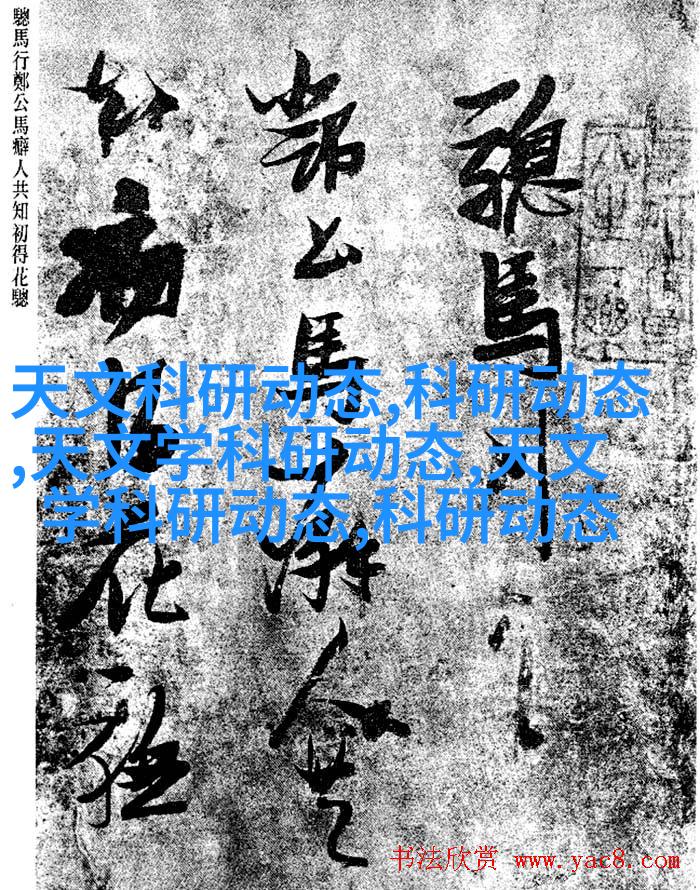 驄馬行
鄭公馬癖人共
知初得花驄
驄馬行鄭公馬癖人共知初得花驄
天文科研动态,科研动态
,天文学科研动态,天文
学科研动态,科研动态
书法欣赏 www.yac8.com